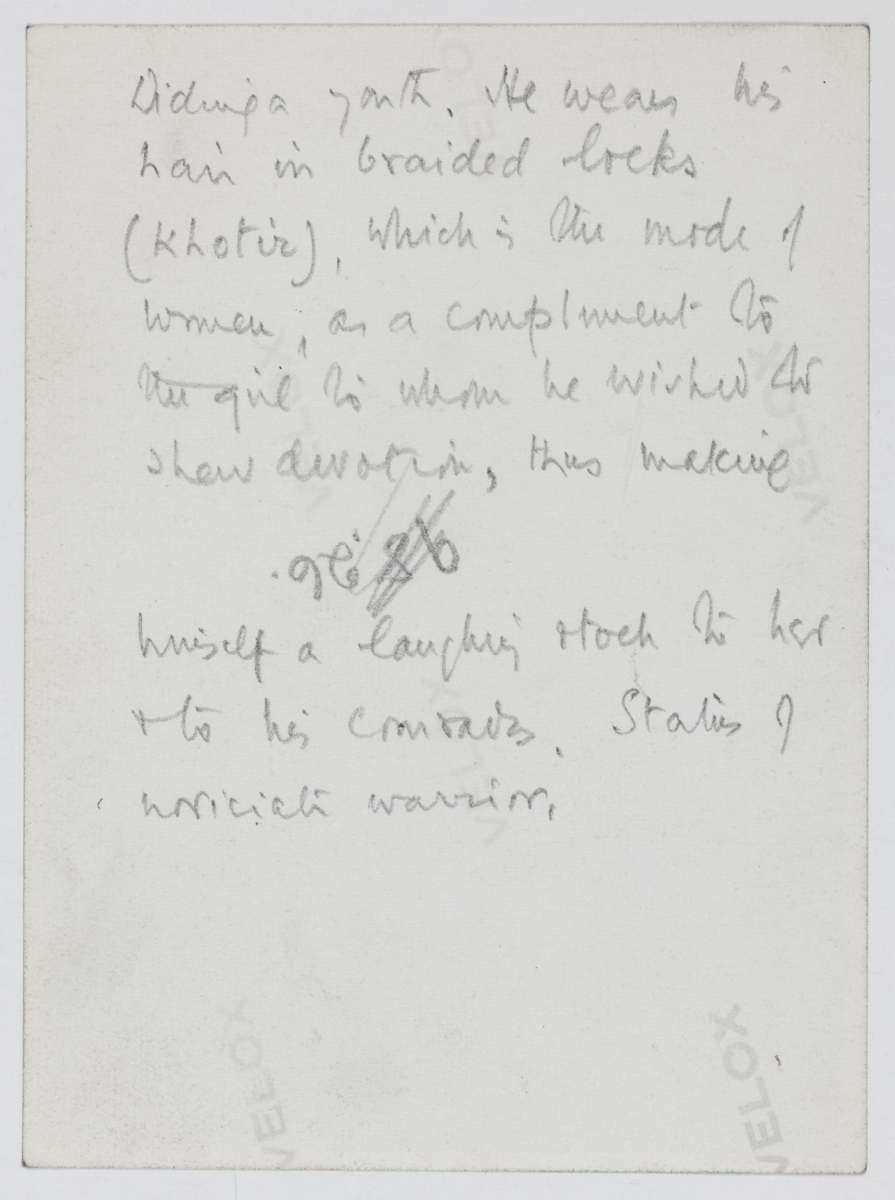 Didinga youth. He wears his
hair in braided locks
(Khotir), which is the mode of
women, as a compliment to
the girl to whom he wished to
shew devotion, thus making
himself a laughing stock to her
& to his comrades. Status of
noviciate warrior.
VELOX
VELOX
VELOX
VELOX
VELOX
VELOX